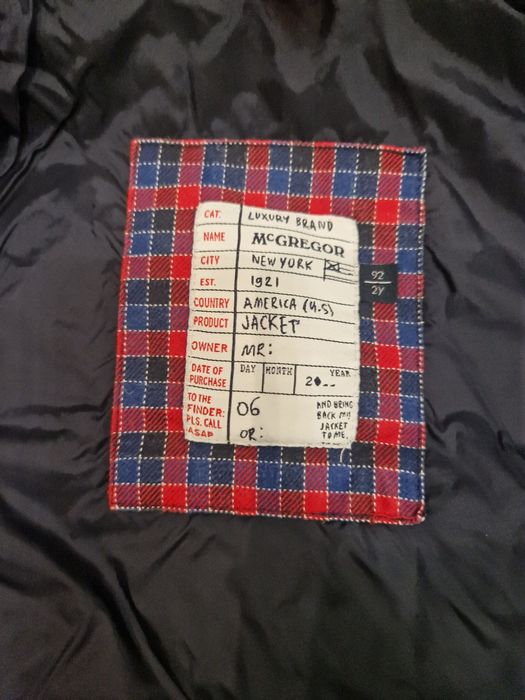 CAT. LUXURY BRAND
NAME McGREGOR
CITY NEW YORK
EST. 1921
COUNTRY AMERICA (U.S)
PRODUCT JACKET
OWNER MR:
DATE OF PURCHASE DAY MONTH YEAR
20--
TO THE FINDER: PLS. CALL ASAP
06
OR:
AND BRING
BACK MY
JACKET
TO ME.
92
2Y